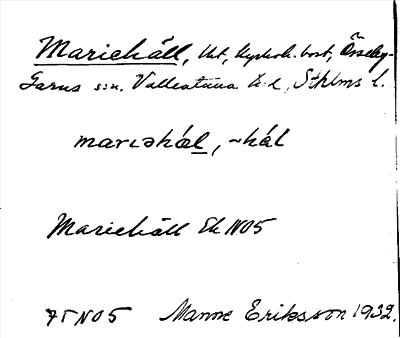 Mariehäll, Kyrkoh. bost, Össeby-
Garns sn. Vallentuna hd, Sthlms l.
marıəhäl, ~häl
Mariehäll Ek NO5
75 NO5 Manne Eriksson 1932.